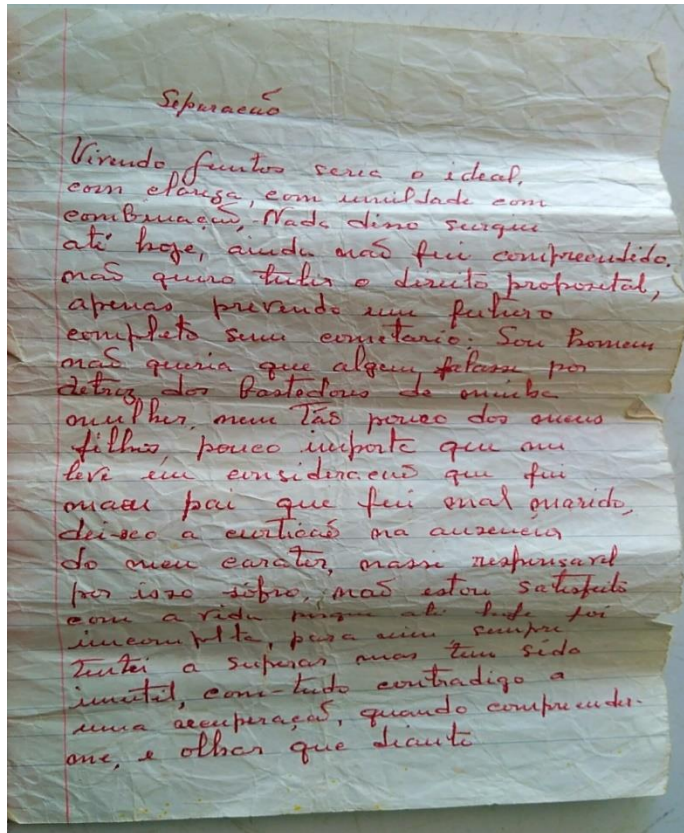 Separacaõ
Vivendo juntos seria o ideal.
com clareza, com umildade com
combinação, Nada disso surgiu
até hoje, ainda naõ fui compreendido.
naõ quero tuler o direito proposital,
apenas prevendo um futuro
completo sem cometario. Sou homem
naõ queria que algem falasse por
detraz dos bastedores de minha
mulher, nem Tão pouco dos meus
filhos, pouco importe que me
leve em consideracaõ que fui
mau pai que fui mal marido,
deixo a curticaõ na auzencia
do meu carater, nassi responsavel
por isso sofro, naõ estou satisfeito
com a vida porque até hoje foi
imcomplta, para mim, sempre
Tentei a superar mas tem sido
inutil, com-tudo contradigo a
uma recuperação, quando compreender-
me, e olhar que diante